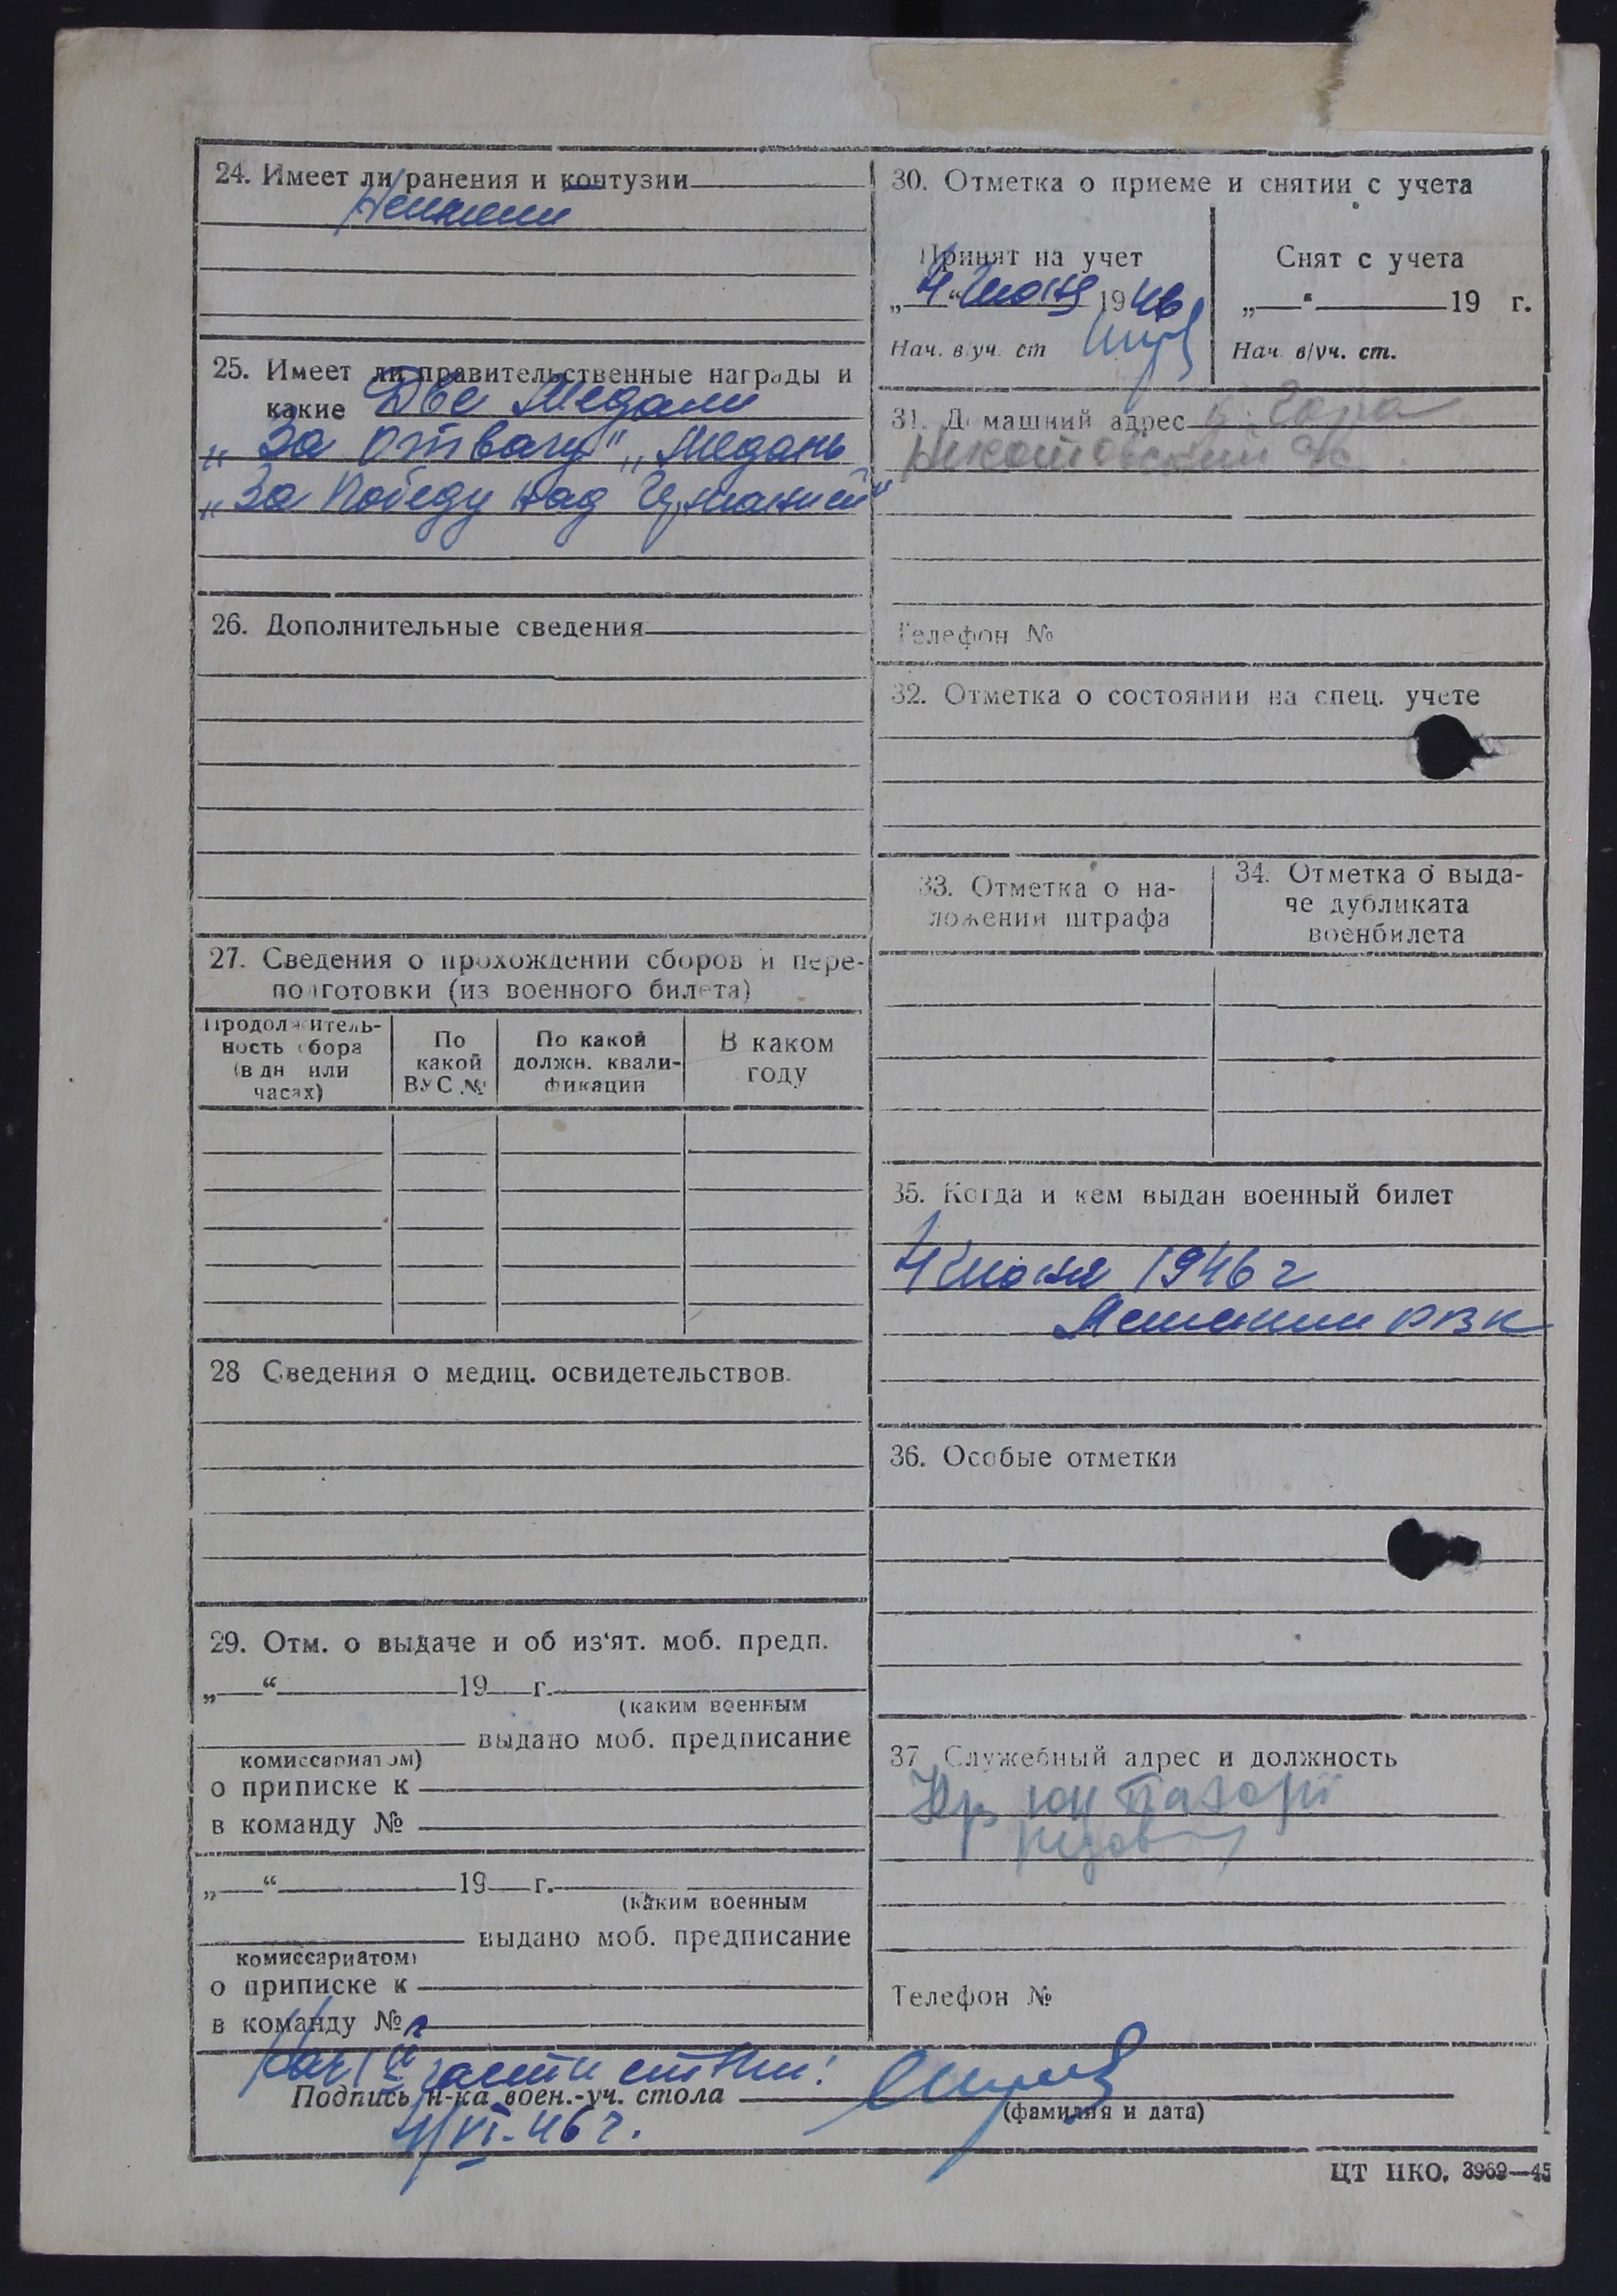 24. Имеет ли ранения и контузии
25. Имеет ли правительственные награды и
какие Две Медали
„За отвагу" „Медаль
„За Победу над Германией"
26. Дополнительные сведения
27. Сведения о прохождении сборов и пере-
подготовки (из военного билета)
Продолжитель-
ность сбора
(в дн или
часах)
По
какой
ВУС №
По какой
должн. квали-
фикации
В каком
году
28 Сведения о медиц. освидетельствов.
29. Отм. о выдаче и об из'ят. моб. предп.
„ “ 19 г.
(каким военным
выдано моб. предписание
комиссариатом)
о приписке к
в команду №
„ “ 19 г.
(каким военным
выдано моб. предписание
комиссариатом)
о приписке к
в команду №
30. Отметка о приеме и снятии с учета
Принят на учет
„4“ июня 1946
Нач. в/уч. ст
Снят с учета
„ “ 19 г.
Нач. в/уч. ст.
31. Домашний адрес
Телефон №
32. Отметка о состоянии на спец. учете
33. Отметка о на-
ложении штрафа
34. Отметка о выда-
че дубликата
военбилета
35. Когда и кем выдан военный билет
4 июня 1946 г
РВК
36. Особые отметки
37. Служебный адрес и должность
Телефон №
Нач 1 й части
Подпись н-ка воен.-уч. стола
(фамилия и дата)
4/VI-46 г.
ЦТ НКО. 3969—45